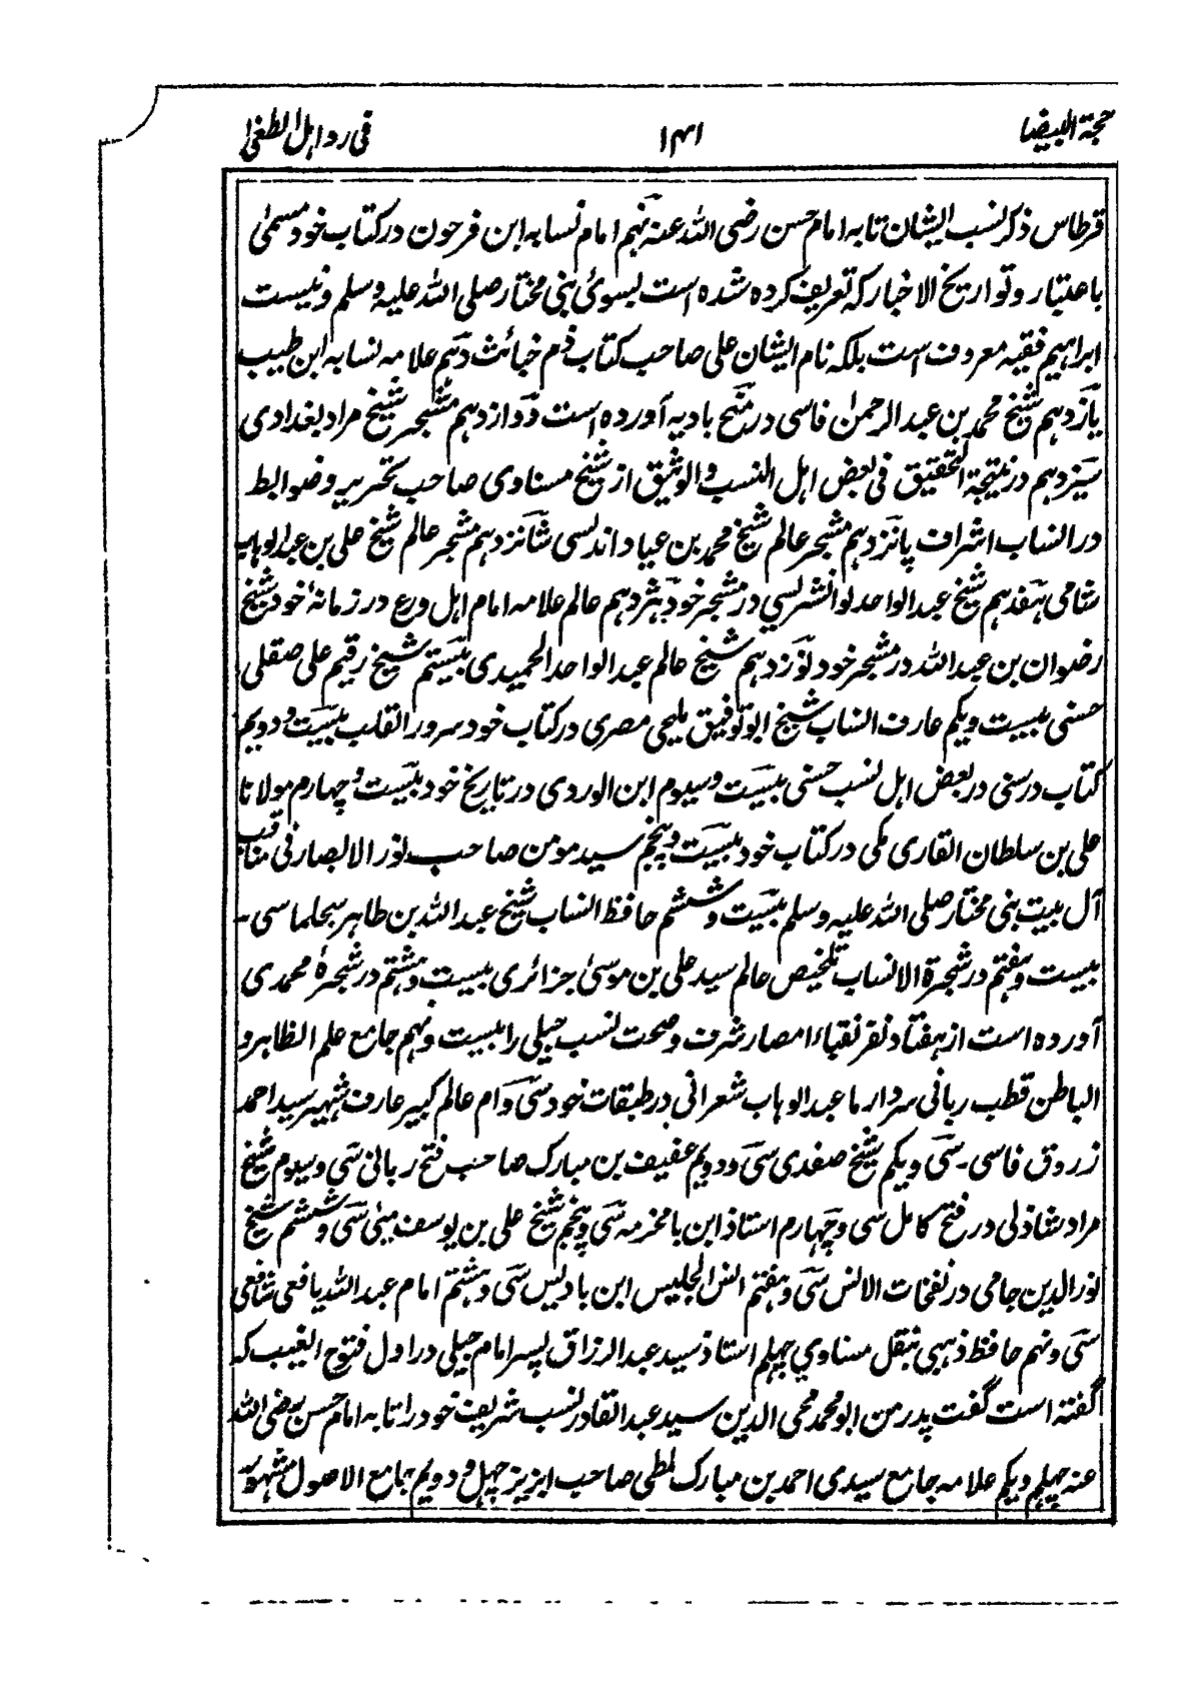 حجة البیضا ۱۴۱ فی رد اہل الطغیٰ
قرطاس ذکر نسب ایشان تا بہ امام حسن رضی اللہ عنہ نہم امام نسابہ ابن فرحون در کتاب خود مسمیٰ
باعتبار و تواریخ الاخبار کہ تعریف کردہ شدہ است بسوئ نبی مختار صلی اللہ علیہ وسلم و نیست
ابراہیم فقیہ معروف است بلکہ نام ایشان علی صاحب کتاب ذم خبائث دہم علامہ نسابہ ابن طبیب
یازدہم شیخ محمد بن عبد الرحمن فاسی در منح بادیہ آوردہ است دوازدہم مشجر شیخ مراد بغدادی
سیزدہم در نتیجۃ التحقیق فی بعض اہل النسب والوثیق از شیخ مسناوی صاحب تحریر و ضوابط
در انساب اشراف پانزدہم مشجر عالم شیخ محمد بن عیاد اندلسی شانزدہم مشجر عالم شیخ علی بن عبد الوہاب
شامی ہفدہم شیخ عبد الواحد لوانشریسی در مشجر خود ہژدہم عالم علامہ امام اہل ورع در زمانۂ خود شیخ
رضوان بن عبد اللہ در مشجر خود نوزدہم شیخ عالم عبد الواحد الحمیدی بیستم شیخ رقیم علی صقلی
حسنی بیست ویکم عارف انساب شیخ ابو توفیق ملیحی مصری در کتاب خود سرور القلب بیست و دویم
کتاب در سنی در بعض اہل نسب حسنی بیست وسیوم ابن الوردی در تاریخ خود بیست و چہارم مولانا
علی بن سلطان القاری مکی در کتاب خود بیست و پنجم سید مومن صاحب نور الابصار فی مناقب
آل بیت نبی مختار صلی اللہ علیہ وسلم بیست و ششم حافظ انساب شیخ عبد اللہ بن طاہر سجلماسی۔
بیست و ہفتم در شجرۃ الانساب تلخیص عالم سید علی بن موسیٰ جزائری بیست و ہشتم در شجرۂ محمدی
آوردہ است از ہفتاد نفر نقباء امصار شرف و صحت نسب جیلی را بیست و نہم جامع علم الظاہر و
الباطن قطب ربانی سردار ما عبد الوہاب شعرانی در طبقات خود سی وام عالم کبیر عارف شہیر سید احمد
زروق فاسی۔ سی ویکم شیخ صفدی سی و دویم عفیف بن مبارک صاحب فتح ربانی سی وسیوم شیخ
مراد شاذلی در فتح کامل سی و چہارم استاذ ابن بامخرمہ سی و پنجم شیخ علی بن یوسف مینی سی و ششم شیخ
نور الدین جامی در نفحات الانس سی و ہفتم انس الجلیس ابن بادیس سی و ہشتم امام عبد اللہ یافعی شافعی
سی و نہم حافظ ذہبی بنقل مسناوی چہلم استاذ سید عبد الرزاق پسر امام جیلی در اول فتوح الغیب کہ
گفتہ است گفت پدر من ابو محمد محی الدین سید عبد القادر نسب شریف خود را تا بہ امام حسن رضی اللہ
عنہ چہلم ویکم علامہ جامع سیدی احمد بن مبارک لمطی صاحب ابریز چہل و دویم جامع الاصول مشہور